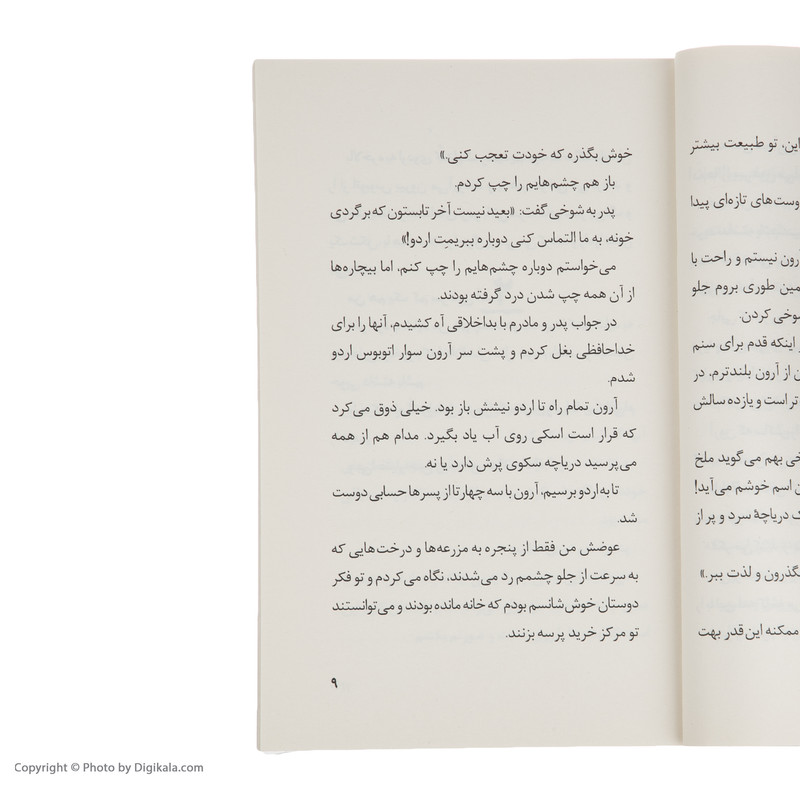 این، تو طبیعت بیشتر
وست‌های تازه‌ای پیدا
آرون نیستم و راحت با
مین طوری بروم جلو
شوخی کردن.
اینکه قدم برای سنم
ن از آرون بلندترم، در
تر است و یازده سالش
خی بهم می‌گوید ملخ
ن اسم خوشم می‌آید!
ک دریاچهٔ سرد و پر از
گذرون و لذت ببر.»
ممکنه این‌قدر بهت
خوش بگذره که خودت تعجب کنی.»
باز هم چشم‌هایم را چپ کردم.
پدر به شوخی گفت: «بعید نیست آخر تابستون که برگردی
خونه، به ما التماس کنی دوباره ببریمِت اردو!»
می‌خواستم دوباره چشم‌هایم را چپ کنم، اما بیچاره‌ها
از آن همه چپ شدن درد گرفته بودند.
در جواب پدر و مادرم با بداخلاقی آه کشیدم، آنها را برای
خداحافظی بغل کردم و پشت سر آرون سوار اتوبوس اردو
شدم.
آرون تمام راه تا اردو نیشش باز بود. خیلی ذوق می‌کرد
که قرار است اسکی روی آب یاد بگیرد. مدام هم از همه
می‌پرسید دریاچه سکوی پرش دارد یا نه.
تا به اردو برسیم، آرون با سه چهار تا از پسرها حسابی دوست
شد.
عوضش من فقط از پنجره به مزرعه‌ها و درخت‌هایی که
به سرعت از جلو چشمم رد می‌شدند، نگاه می‌کردم و تو فکر
دوستان خوش‌شانسم بودم که خانه مانده بودند و می‌توانستند
تو مرکز خرید پرسه بزنند.
۹
Copyright © Photo by Digikala.com